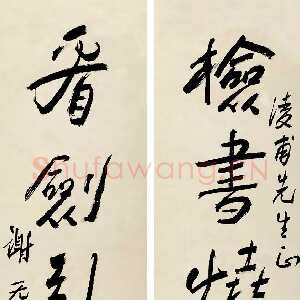 凌甫先生正
檢書燒
看劍引
謝无
Shufawang.CN